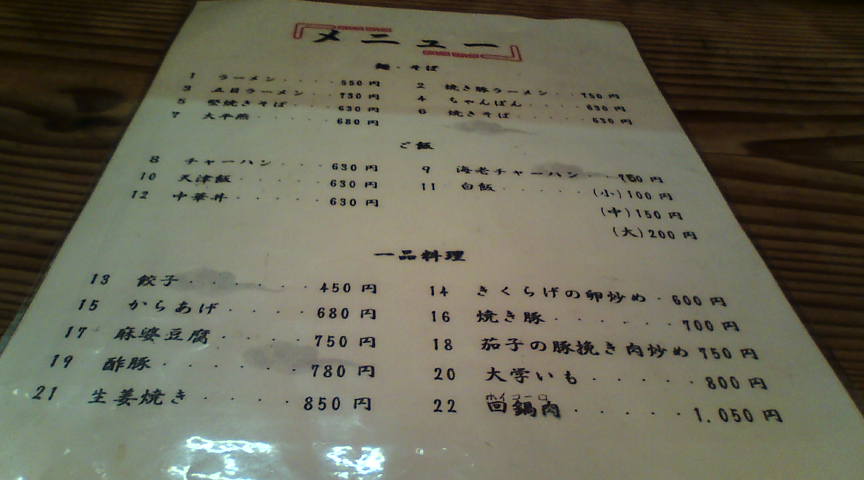 メニュー
麺・そば
1 ラーメン・・・・550円 2 焼き豚ラーメン・・750円
3 五目ラーメン・・・730円 4 ちゃんぽん・・・・630円
5 堅焼きそば・・・・630円 6 焼きそば・・・・・630円
7 太平燕・・・・・680円
ご飯
8 チャーハン・・・630円 9 海老チャーハン・・750円
10 天津飯・・・・・630円 11 白飯・・・・・・(小)100円
12 中華丼・・・・・630円 (中)150円
(大)200円
一品料理
13 餃子・・・・・・450円 14 きくらげの卵炒め・600円
15 からあげ・・・・・680円 16 焼き豚・・・・・・700円
17 麻婆豆腐・・・・・750円 18 茄子の豚挽き肉炒め 750円
19 酢豚・・・・・・780円 20 大学いも・・・・・800円
21 生姜焼き・・・・・850円 22 回鍋肉・・・・・1.050円
ホイコーロ